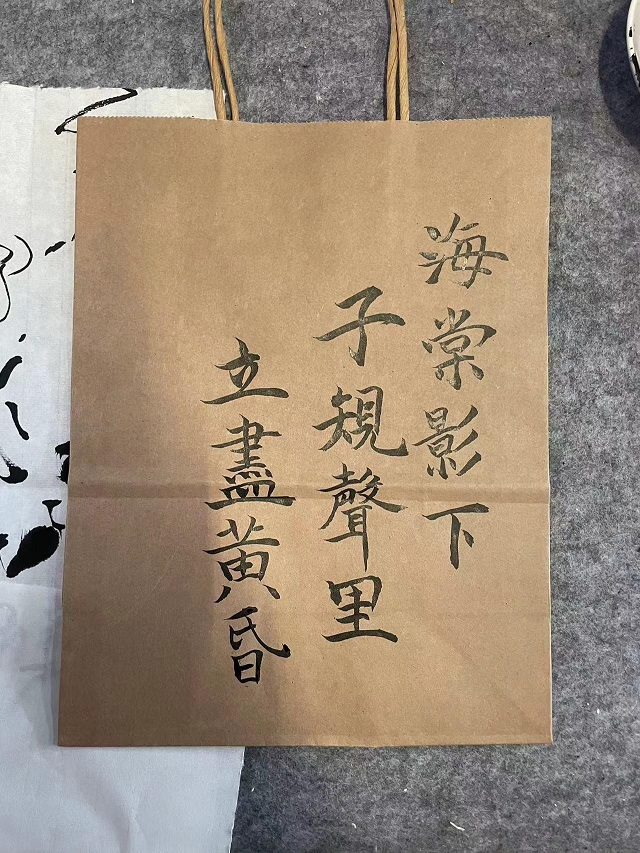 海棠影下
子規聲里
立盡黄昏